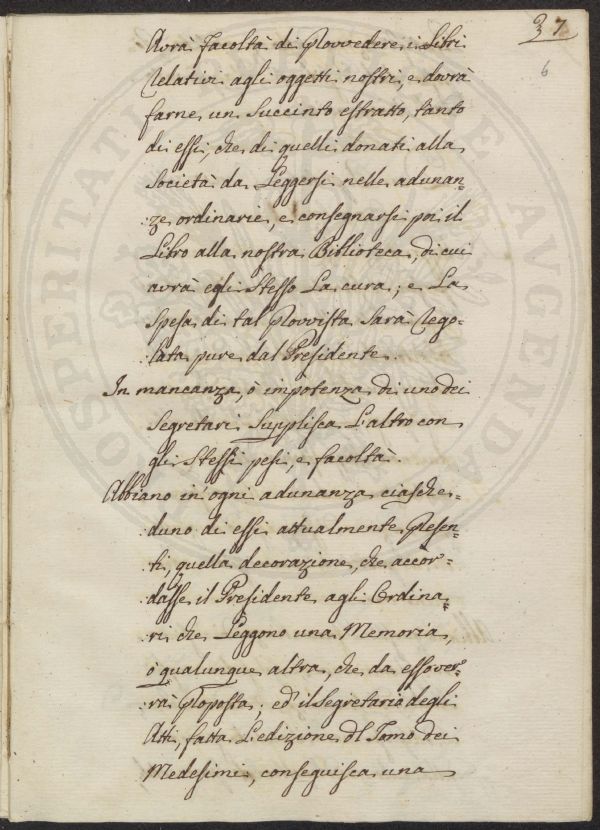 37
6
Avrà facoltà di Provvedere i Libri
relativi agli oggetti nostri, e dovrà
farne un Succinto estratto, tanto
di essi, che di quelli donati alla
Società da Leggersi nelle adunan-
:ze ordinarie, e consegnarsi poi il
Libro alla nostra Biblioteca, di cui
avrà egli Stesso La cura; e La
Spesa di tal Provvista Sarà rego-
:lata pure dal Presidente.
In mancanza, ò impotenza di uno dei
Segretari Supplisca L'altro con
gli Stessi pesi, e facoltà.
Abbiano in ogni adunanza ciasche-
:duno di essi attualmente Presen-
:ti, quella decorazione, che accor-
:dasse il Presidente agli Ordina-
:ri che Leggono una Memoria,
ò qualunque altra, che da esso ver-
:rà Proposta; ed' il Segretario degli
Atti, fatta L'edizione dl Tomo dei
Medesimi, conseguisca una
PROSPERITATI PUBLICAE AUGENDAE